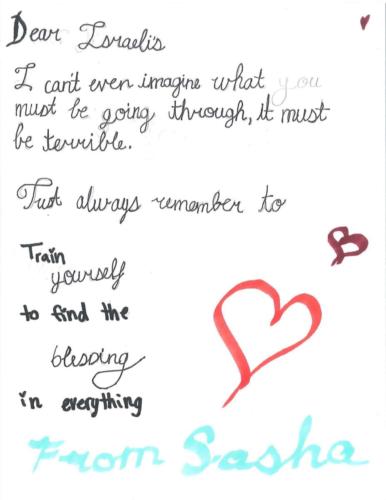 Dear Israelis
I can't even imagine what you
must be going through, it must
be terrible.
Just always remember to
Train
yourself
to find the
blessing
in everything
From Sasha